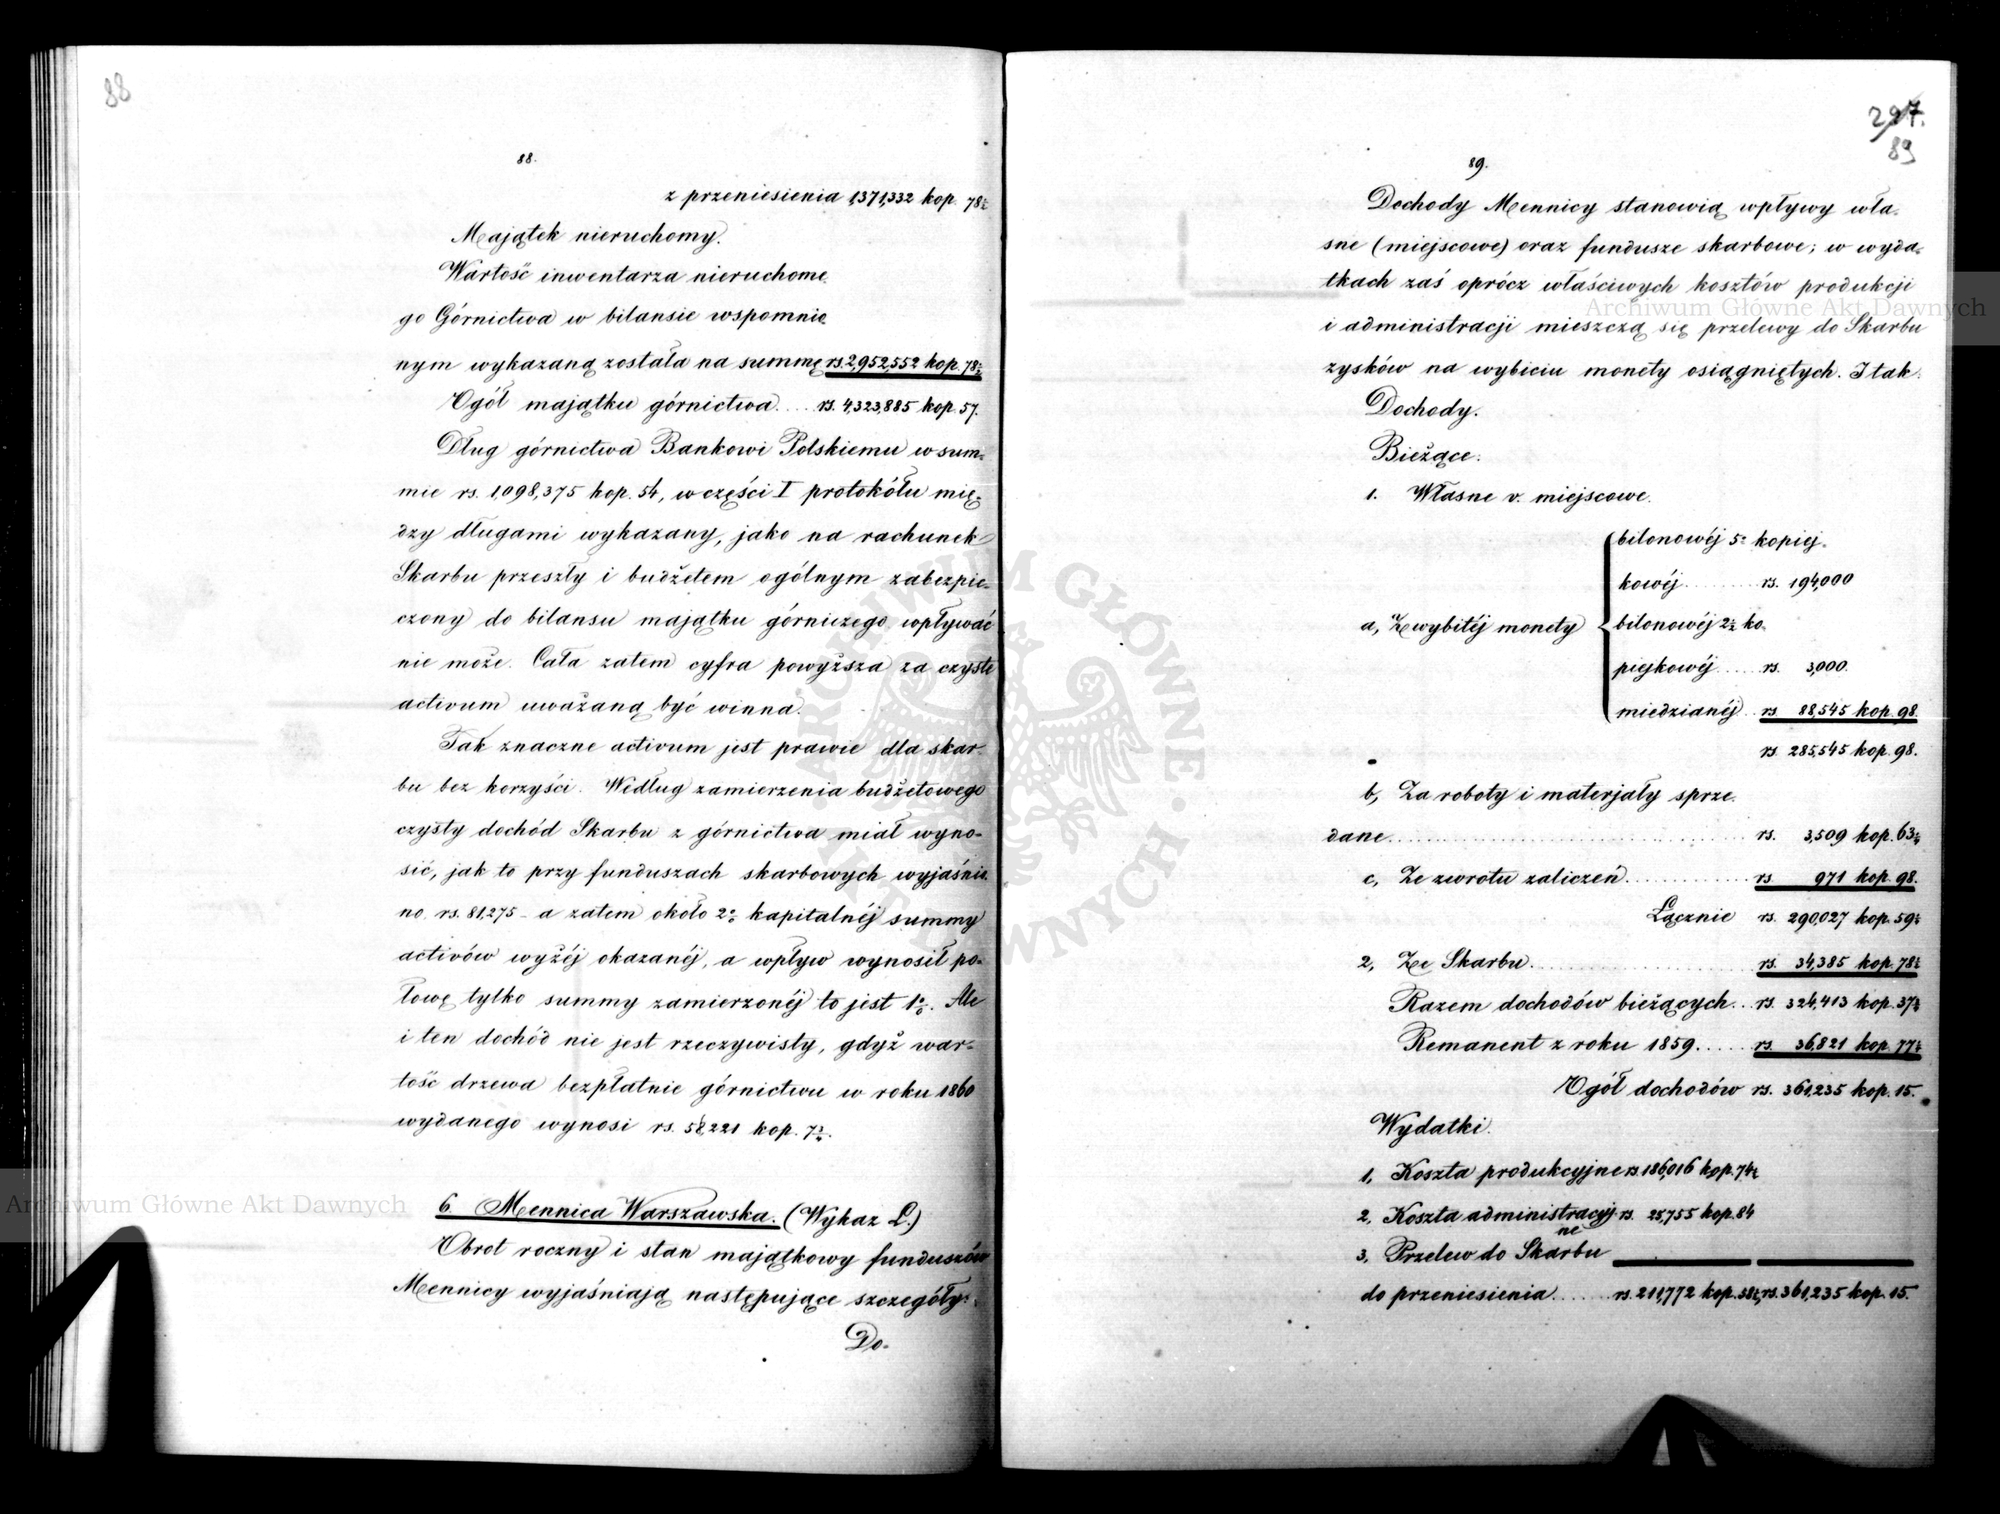 88
88.
z przeniesienia 1,371,332 kop. 78½
Majątek nieruchomy.
Wartość inwentarza nieruchome-
go Górnictwa w bilansie wspomnio-
nym wykazaną została na summę rs. 2,952,552 kop. 78½
Ogół majątku górnictwa.... rs. 4,323,885 kop. 57.
Dług górnictwa Bankowi Polskiemu w sum-
mie rs. 1,098,375 kop. 54, w części I protokółu mię-
dzy długami wykazany, jako na rachunek
Skarbu przeszły i budżetem ogólnym zabezpie-
czony do bilansu majątku górniczego wpływać
nie może. Cała zatem cyfra powyższa za czyste
activum uważaną być winna.
Tak znaczne activum jest prawie dla skar-
bu bez korzyści. Według zamierzenia budżetowego
czysty dochód Skarbu z górnictwa miał wyno-
sić, jak to przy funduszach skarbowych wyjaśnio-
no, rs. 81,275 – a zatem około 2% kapitalnéj summy
activów wyżéj okazanéj, a wpływ wynosił po-
łowę tylko summy zamierzonéj to jest 1%. Ale
i ten dochód nie jest rzeczywisty, gdyż war-
tość drzewa bezpłatnie górnictwu w roku 1860
wydanego wynosi rs. 58,221 kop. 7½.
6. Mennica Warszawska. (Wykaz L.)
Obrot roczny i stan majątkowy funduszów
Mennicy wyjaśniają następujące szczegóły:
Do-
297.
89
89.
Dochody Mennicy stanowią wpływy wła-
sne (miejscowe) oraz fundusze skarbowe; w wyda-
tkach zaś oprócz właściwych kosztów produkcji
i administracji mieszczą się przelewy do Skarbu
zysków na wybiciu monety osiągniętych. I tak.
Dochody.
Bieżące.
1. Własne v. miejscowe.
bilonowéj 5. kopiej-
kowéj........ rs. 194,000
a, Ze wybitéj monety bilonowéj 2½ ko-
piejkowéj..... rs. 3,000.
miedzianéj.. rs. 88,545 kop. 98.
rs. 285,545 kop. 98.
b, Za roboty i materjały sprze-
dane.................... rs. 3,509 kop. 63½
c, Ze zwrotu zaliczeń............ rs. 971 kop. 98.
Łącznie rs. 290,027 kop. 59½
2, Ze Skarbu.................... rs. 34,385 kop. 78½
Razem dochodów bieżących... rs. 324,413 kop. 37½
Remanent z roku 1859..... rs. 36,821 kop. 77½
Ogół dochodów rs. 361,235 kop. 15.
Wydatki.
1, Koszta produkcyjne rs. 186,016 kop. 74½
2, Koszta administracyj- rs. 25,755 kop. 84
ne
3, Przelew do Skarbu
do przeniesienia...... rs. 211,772 kop. 58½, rs. 361,235 kop. 15.
Archiwum Główne Akt Dawnych
Archiwum Główne Akt Dawnych
ARCHIWUM GŁÓWNE AKT DAWNYCH